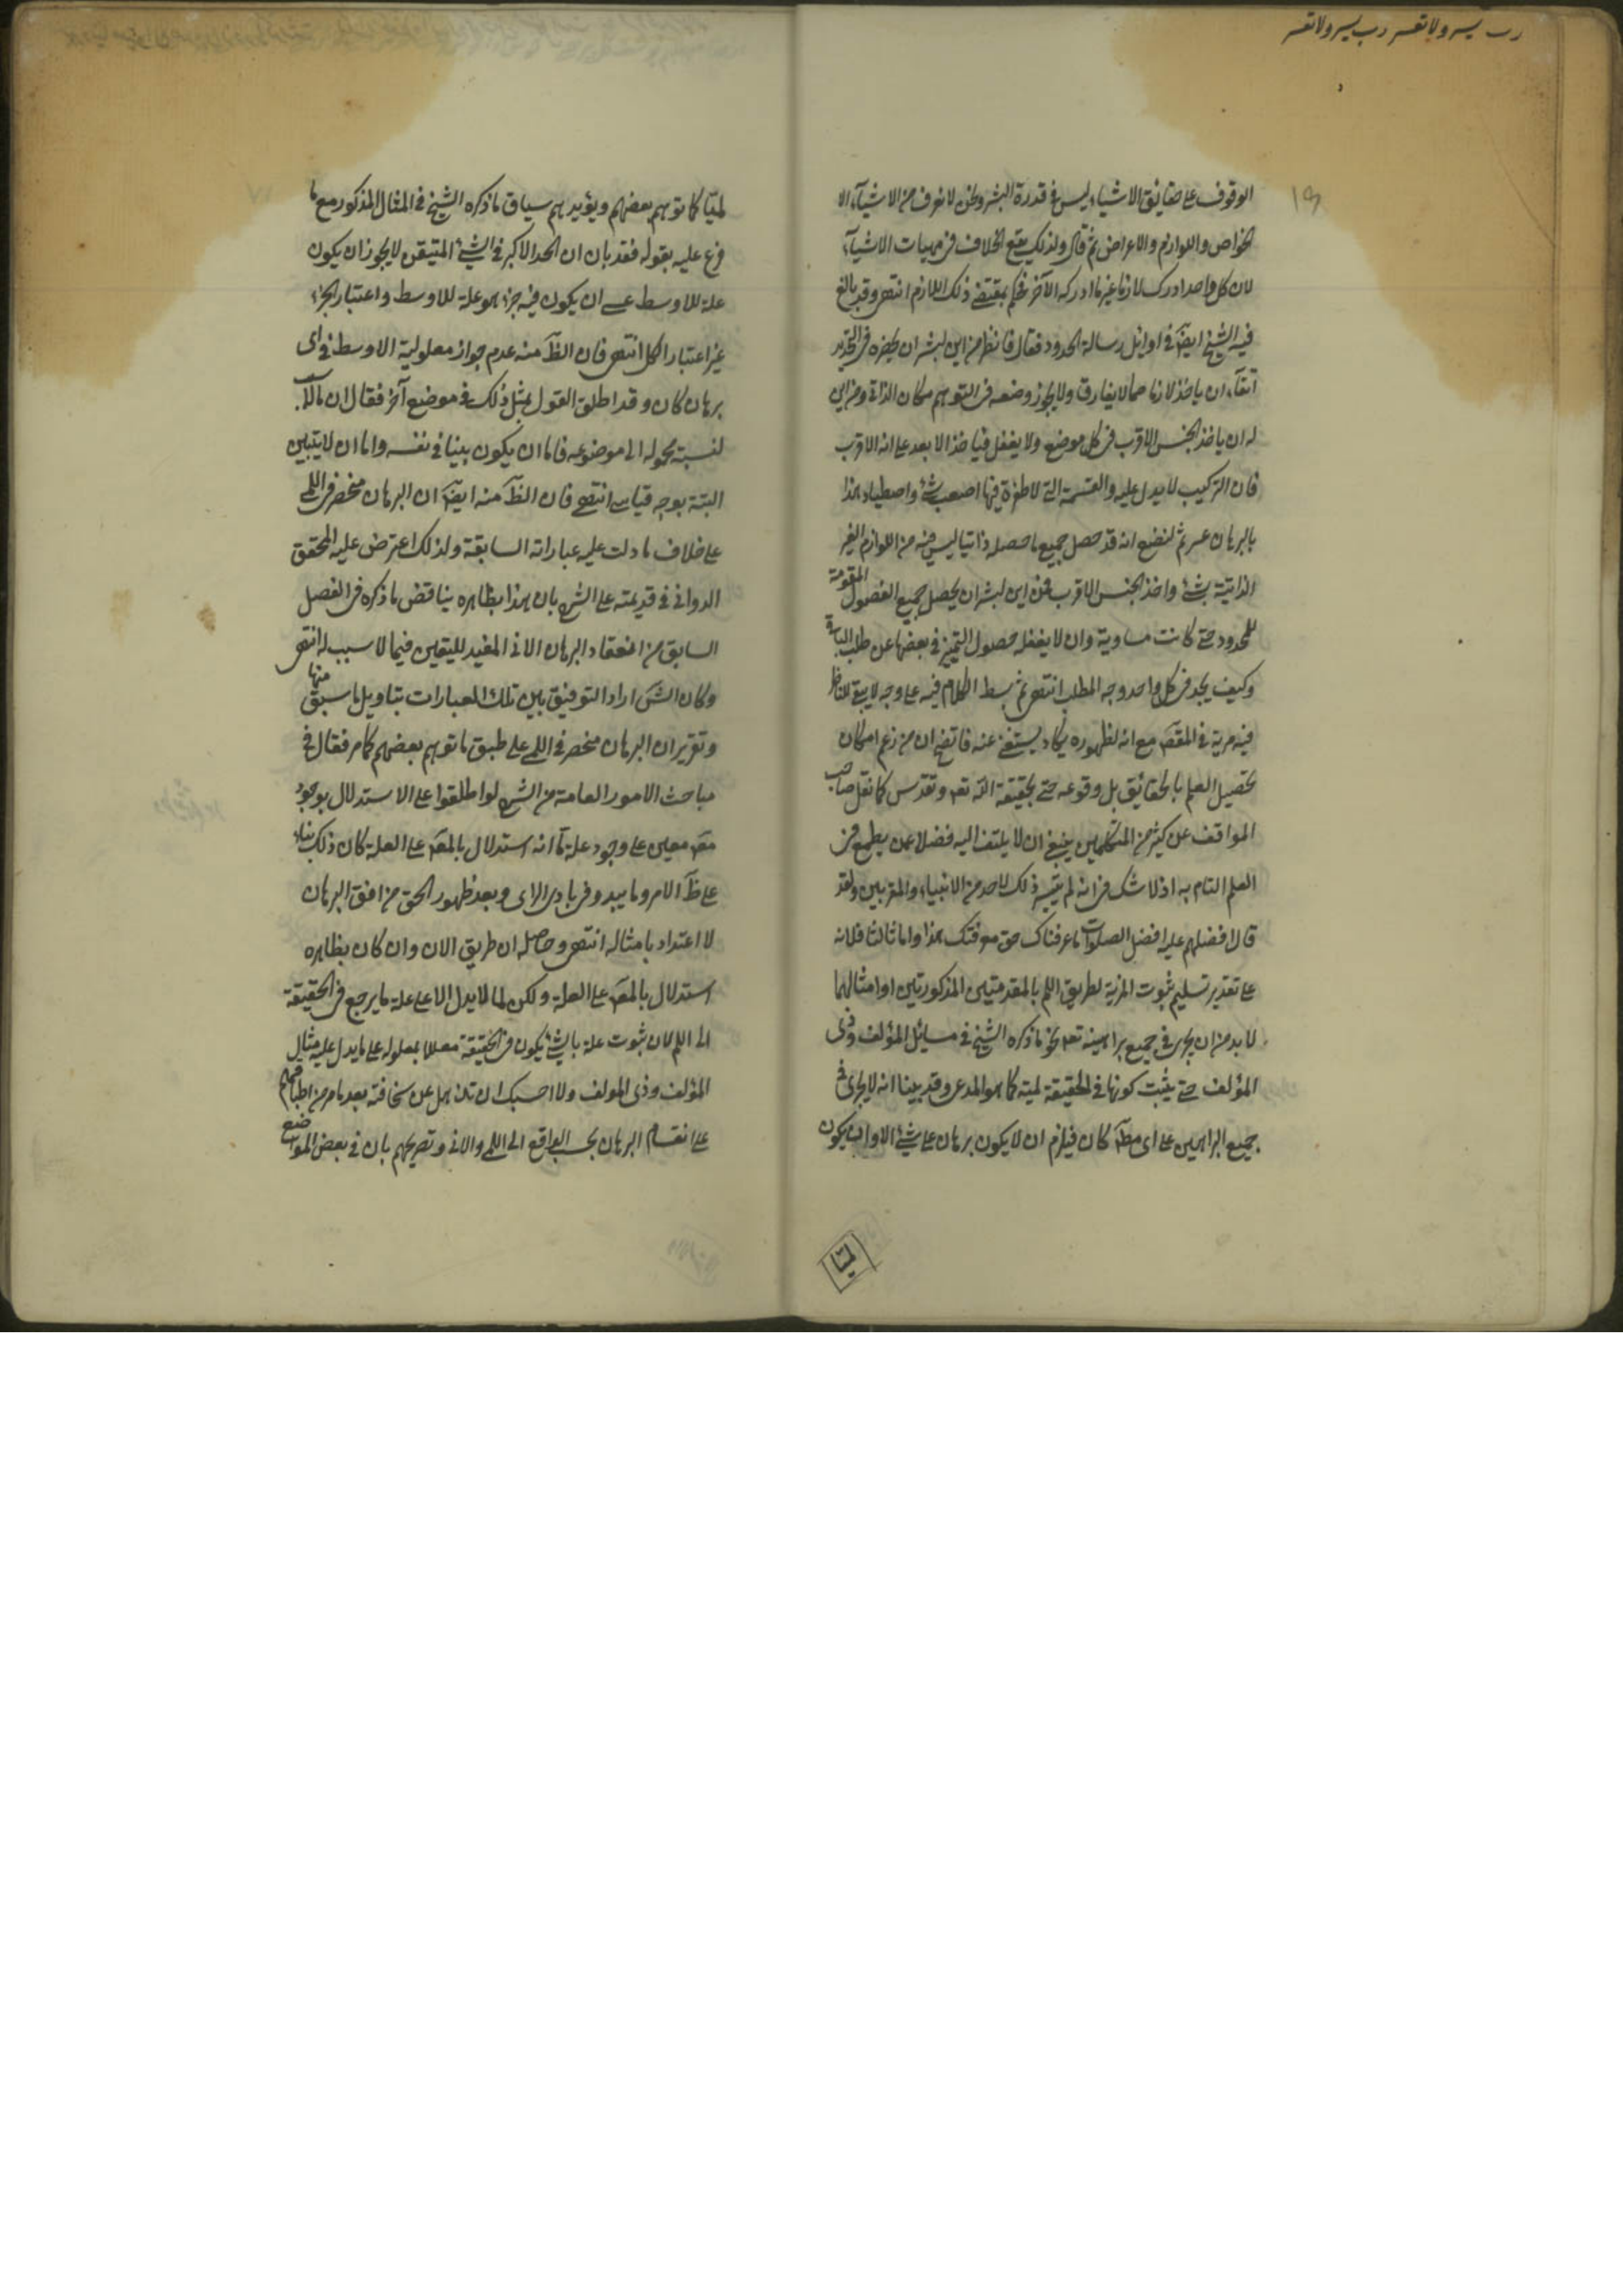 رب يسر ولا تعسر رب يسر ولا تعسر
١٩
الوقوف على حقايق الاشياء ليس فى قدرة البشر ونحن لا نعرف من الاشياء الا
الخواص واللوازم والاعراض ثم قال ولذلك يقع الخلاف فى مهيات الاشياء
لان كل واحد ادرك لازما غير ما ادركه الآخر فحكم بمقتضى ذلك اللازم انتهى وقد بالغ
فيه الشيخ ايضا فى اوايل رسالة الحدود فقال فانظر من اين لبشر ان يحضره فى التحديد
اتقاء ان ياخذ لازما مما لا يفارق ولا يجوز وضعه فى التوهم مكان الذاتى ومن اين
له ان ياخذ الجنس الاقرب فى كل موضع ولا يغفل فياخذ الابعد على انه الاقرب
فان التركيب لا يدل عليه والقسمة التى لا طفرة فيها اصعب شئ واصطياد هذا
بالبرهان عسر ثم لنضع انه قد حصل جميع ما حصله ذاتيا ليس فيه من اللوازم الغير
الذاتية شئ واخذ الجنس الاقرب فمن اين لبشر ان يحصل جميع الفصول المقومة
للمحدود حتى كانت مساوية وان لا يغفله حصول التميز فى بعضها عن طلب الباقى
وكيف يجد فى كل واحد وجه المطلب انتهى ثم بسط الكلام فيه على وجه لا يبقى للناظر
فيه مرية فى المقص مع انه لظهوره يكاد يستغنى عنه فاتضح ان من زعم امكان
تحصيل العلم بالحقايق بل وقوعه حتى بحقيقة الله تعه وتقدس كما نقل صاحب
المواقف عن كثير من المتكلمين ينبغى ان لا يلتفت اليه فضلا عمن يطمع فى
العلم التام به اذ لا شك فى انه لم يتيسر ذلك لاحد من الانبياء والمقربين ولقد
قال افضلهم عليه افضل الصلوات ما عرفناك حق معرفتك هذا واما ثالثا فلانه
على تقدير تسليم ثبوت المزية لطريق اللم بالمقدمتين المذكورتين او امثالهما
لا بد من ان يجرى فى جميع براهينه تعه نحو ما ذكره الشيخ فى مسايل المؤلف وذى
المؤلف حتى يثبت كونها فى الحقيقة لمية كما هو المدعى وقد بينا انه لا يجرى فى
جميع البراهين على اى مط كان فيلزم ان لا يكون برهان على شئ الا وان يكون
لميا
لميا كما توهم بعضهم ويؤيدهم سياق ما ذكره الشيخ فى المثال المذكور مع ما
فرع عليه بقوله فقد بان ان الحد الاكبر فى الشئ المتيقن لا يجوز ان يكون
علة للاوسط عسى ان يكون فيه جزء هو علة للاوسط واعتبار الجزء
غير اعتبار الكل انتهى فان الظ منه عدم جواز معلولية الاوسط فى اى
برهان كان وقد اطلق القول بمثل ذلك فى موضع آخر فقال ان ما لا سبب
لنسبة محموله الى موضوعه فاما ان يكون بينا فى نفسه واما ان لا يتبين
البتة بوجه قياسى انتهى فان الظ منه ايضا ان البرهان منحصر فى اللمى
على خلاف ما دلت عليه عباراته السابقة ولذلك اعترض عليه المحقق
الدوانى فى قديمته على الشرح بان هذا بظاهره يناقض ما ذكره فى الفصل
السابق من انعقاد البرهان الانى المفيد لليقين فيما لا سبب له انتهى
وكان الش اراد التوفيق بين تلك العبارات بتاويل ما سبق منها
وتقرير ان البرهان منحصر فى اللمى على طبق ما توهم بعضهم كما مر فقال فى
مباحث الامور العامة من الشرح لو اطلقوا على الاستدلال بوجود
مع معين على وجود علة ما انه استدلال بالمع على العلة كان ذلك بناء
على ظ الامر وما يبدو فى بادى الراى وبعد ظهور الحق من افق البرهان
لا اعتداد بامثاله انتهى وحاصله ان طريق الان وان كان بظاهره
استدلال بالمع على العلة ولكن لما لا يدل الا على علة ما يرجع فى الحقيقة
الى اللم لان ثبوت علة ما لشئ يكون فى الحقيقة معللا بمعلوله على ما يدل عليه مثال
المؤلف وذى المولف ولا احسبك ان تذهل عن سخافته بعد ما مر من اطباقهم
على انقسام البرهان بحسب الواقع الى اللمى والانى وتصريحهم بان فى بعض المواضع